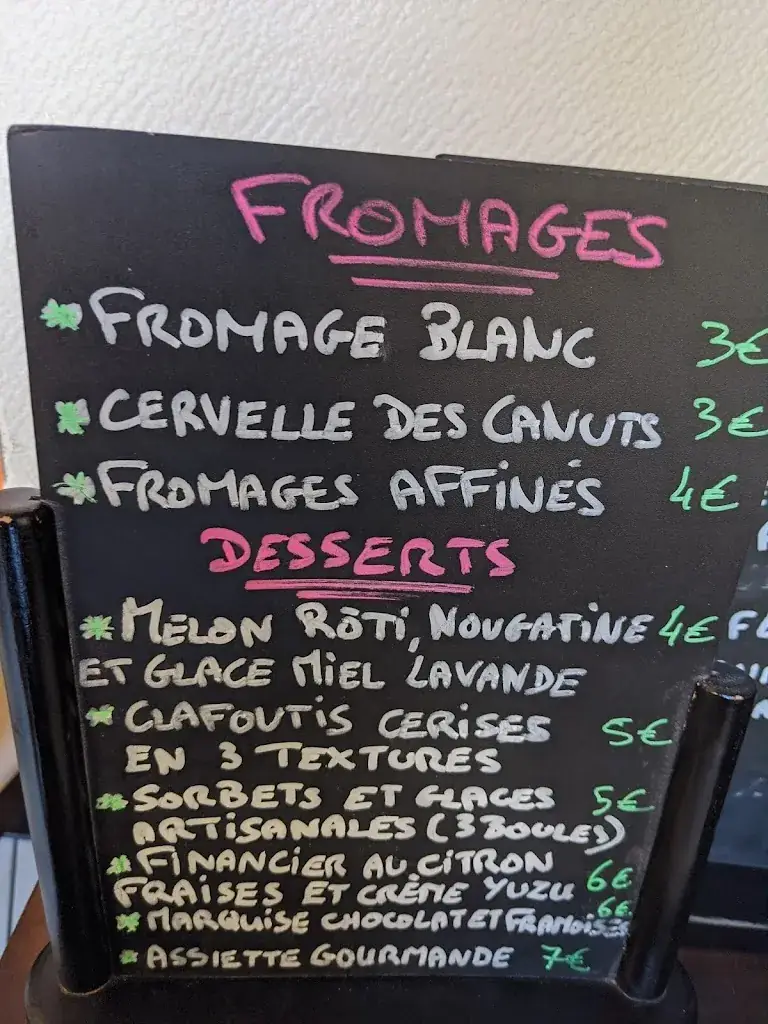 FROMAGES
FROMAGE BLANC 3€
CERVELLE DES CANUTS 3€
FROMAGES AFFINÉS 4€
DESSERTS
MELON RÔTI, NOUGATINE 4€
ET GLACE MIEL LAVANDE
CLAFOUTIS CERISES 5€
EN 3 TEXTURES
SORBETS ET GLACES 5€
ARTISANALES (3 BOULES)
FINANCIER AU CITRON 6€
FRAISES ET CRÈME YUZU
MARQUISE CHOCOLAT ET FRAMBOISES 6€
ASSIETTE GOURMANDE 7€